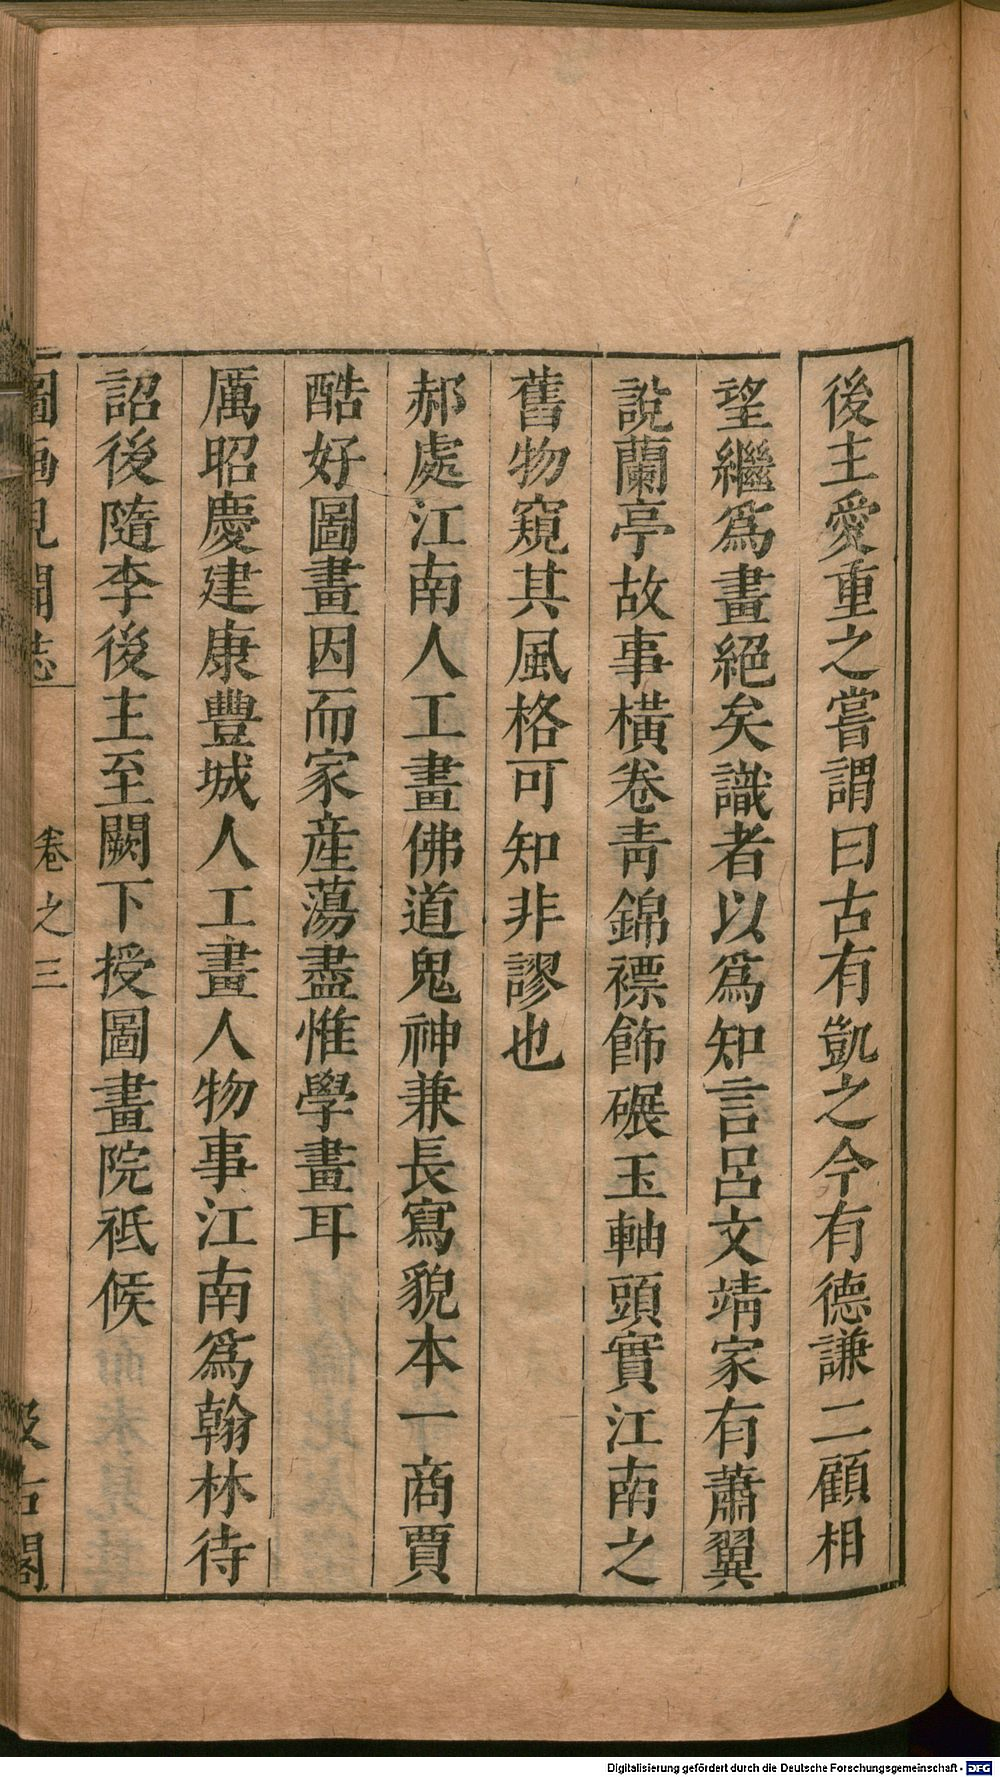 後主愛重之嘗謂曰古有凱之今有德謙二顧相
望繼爲畫絕矣識者以爲知言呂文靖家有蕭翼
說蘭亭故事橫卷青錦褾飾碾玉軸頭實江南之
舊物窺其風格可知非謬也
郝處江南人工畫佛道鬼神兼長寫貌本一商賈
酷好圖畫因而家産蕩盡惟學畫耳
厲昭慶建康豐城人工畫人物事江南爲翰林待
詔後隨李後主至闕下授圖畫院祗候
圖画見聞志
卷之三
汲古閣
Digitalisierung gefördert durch die Deutsche Forschungsgemeinschaft - DFG